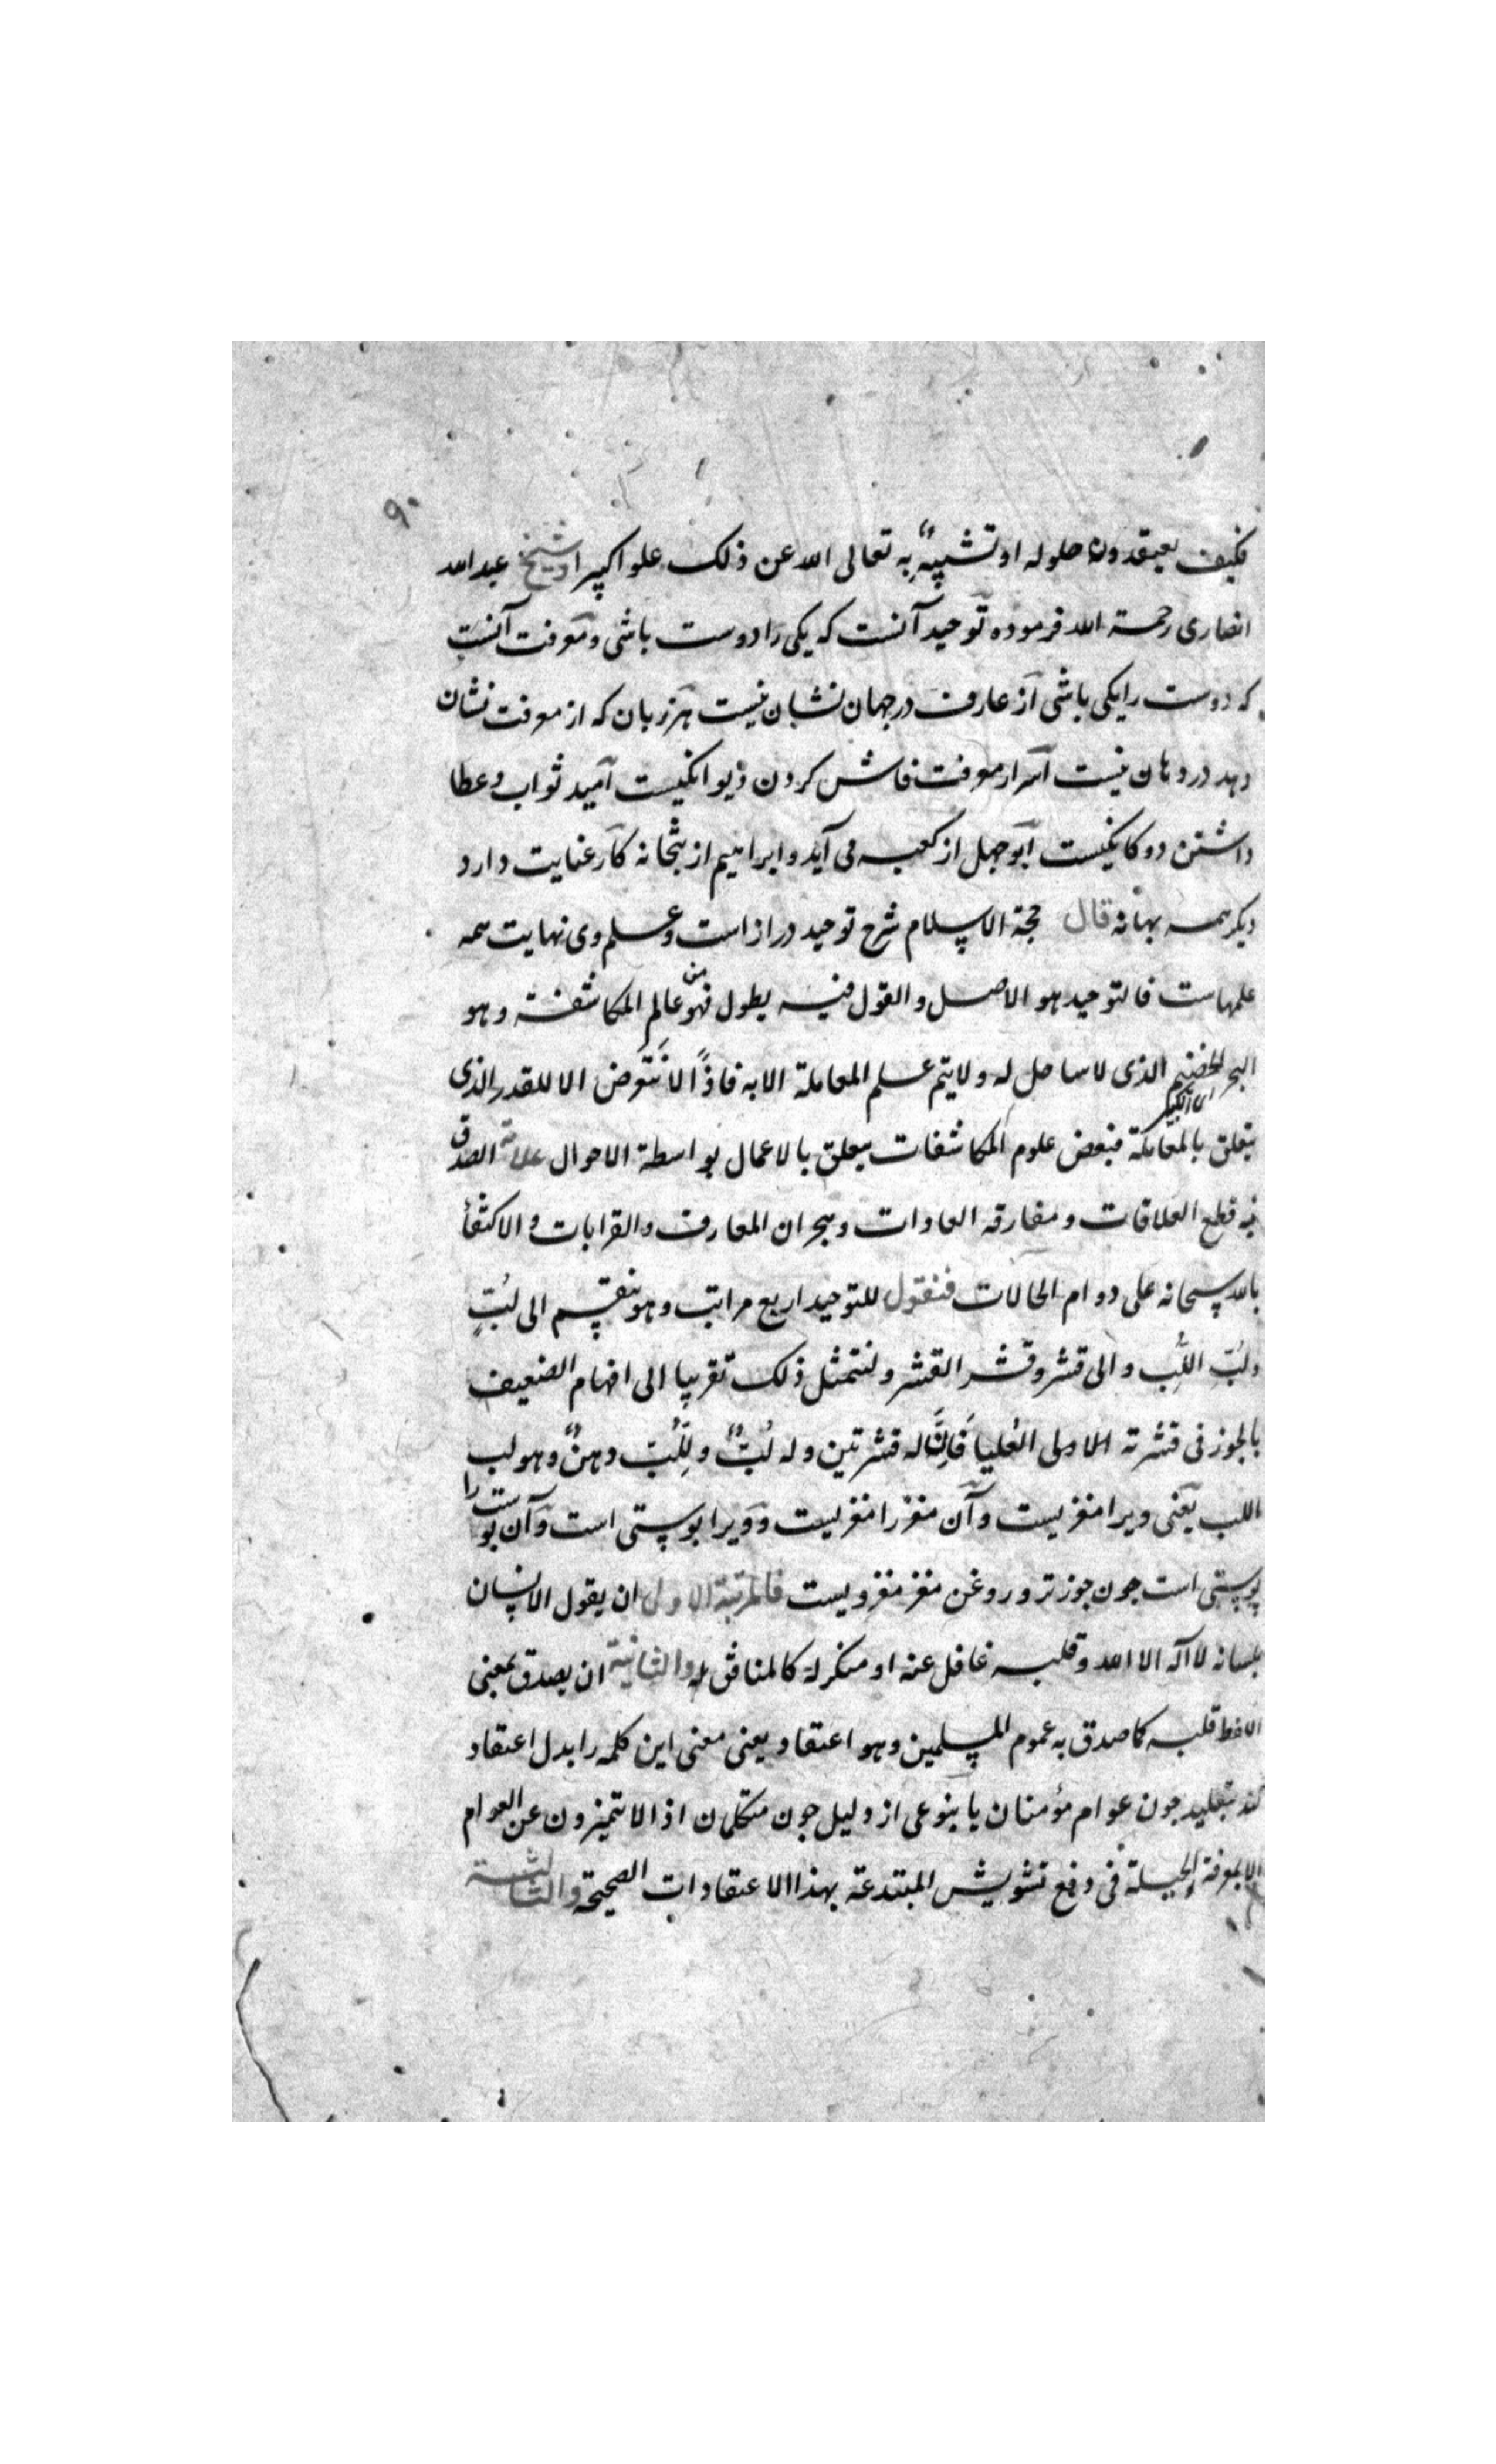 ۹۰
فكيف يعتقدون حلوله او تشبيهٌ به تعالى الله عن ذلك علوا كبيرا و شيخ عبدالله
انصارى رحمة الله فرموده توحيد آنست كه يكى را دوست باشى ومعرفت آنست
كه دوست را يكى باشى از عارف درجهان نشان نيست هر زبان كه از معرفت نشان
دهد در دهان نيست اسرار معرفت فاش كردن ديوانكيست اميد ثواب و عطا
داشتن دوكانكيست ابوجهل از كعبه مى آيد و ابراهيم از بتخانه كار عنايت دارد
ديكر همه بهانه قال حجة الاسلام شرح توحيد دراز است وعلم وى نهايت همه
علمهاست فالتوحيد هو الاصل والقول فيه يطول فهو من عالم المكاشفة وهو
البحر الخضم الذى لا ساحل له ولا يتم علم المعاملة الا به فاذًا لا نتعرض الا للقدر الذى
يتعلق بالمعاملة فبعض علوم المكاشفات يتعلق بالاعمال بواسطة الاحوال علامة الصدق
فيه قطع العلاقات ومفارقه العادات وهجران المعارف والقرابات والاكتفأ
بالله سبحانه على دوام الحالات فنقول للتوحيد اربع مراتب وهو ينقسم الى لُبّ
ولُبّ اللُّب والى قشر وقشر القشر ولنتمثل ذلك تقريبا الى افهام الضعيف
بالجوز فى قشرته الاولى العُليا فَاِنَّ له قشرتين وله لُبٌّ وللُّبّ دهنٌ وهو لب
اللب يعنى ويرا مغزيست وآن مغز را مغزيست و ويرا پوستى است وآن پوست را
پوستى است جون جوز تر و روغن مغز مغز ويست فالمرتبة الاولى ان يقول الانسان
بلسانه لا اله الا الله وقلبه غافل عنه او منكر له كالمنافق له والثانية ان يصدق بمعنى
اللفظ قلبه كما صدق به عموم المسلمين وهو اعتقاد يعنى معنى اين كلمه را بدل اعتقاد
كند بتقليد جون عوام مؤمنان يا بنوعى از دليل جون متكلمان اذ لا يتميزون عن العوام
الا بمعرفة الحيلة فى دفع تشويش المبتدعة بهذا الاعتقادات الصحيحة والثالثة